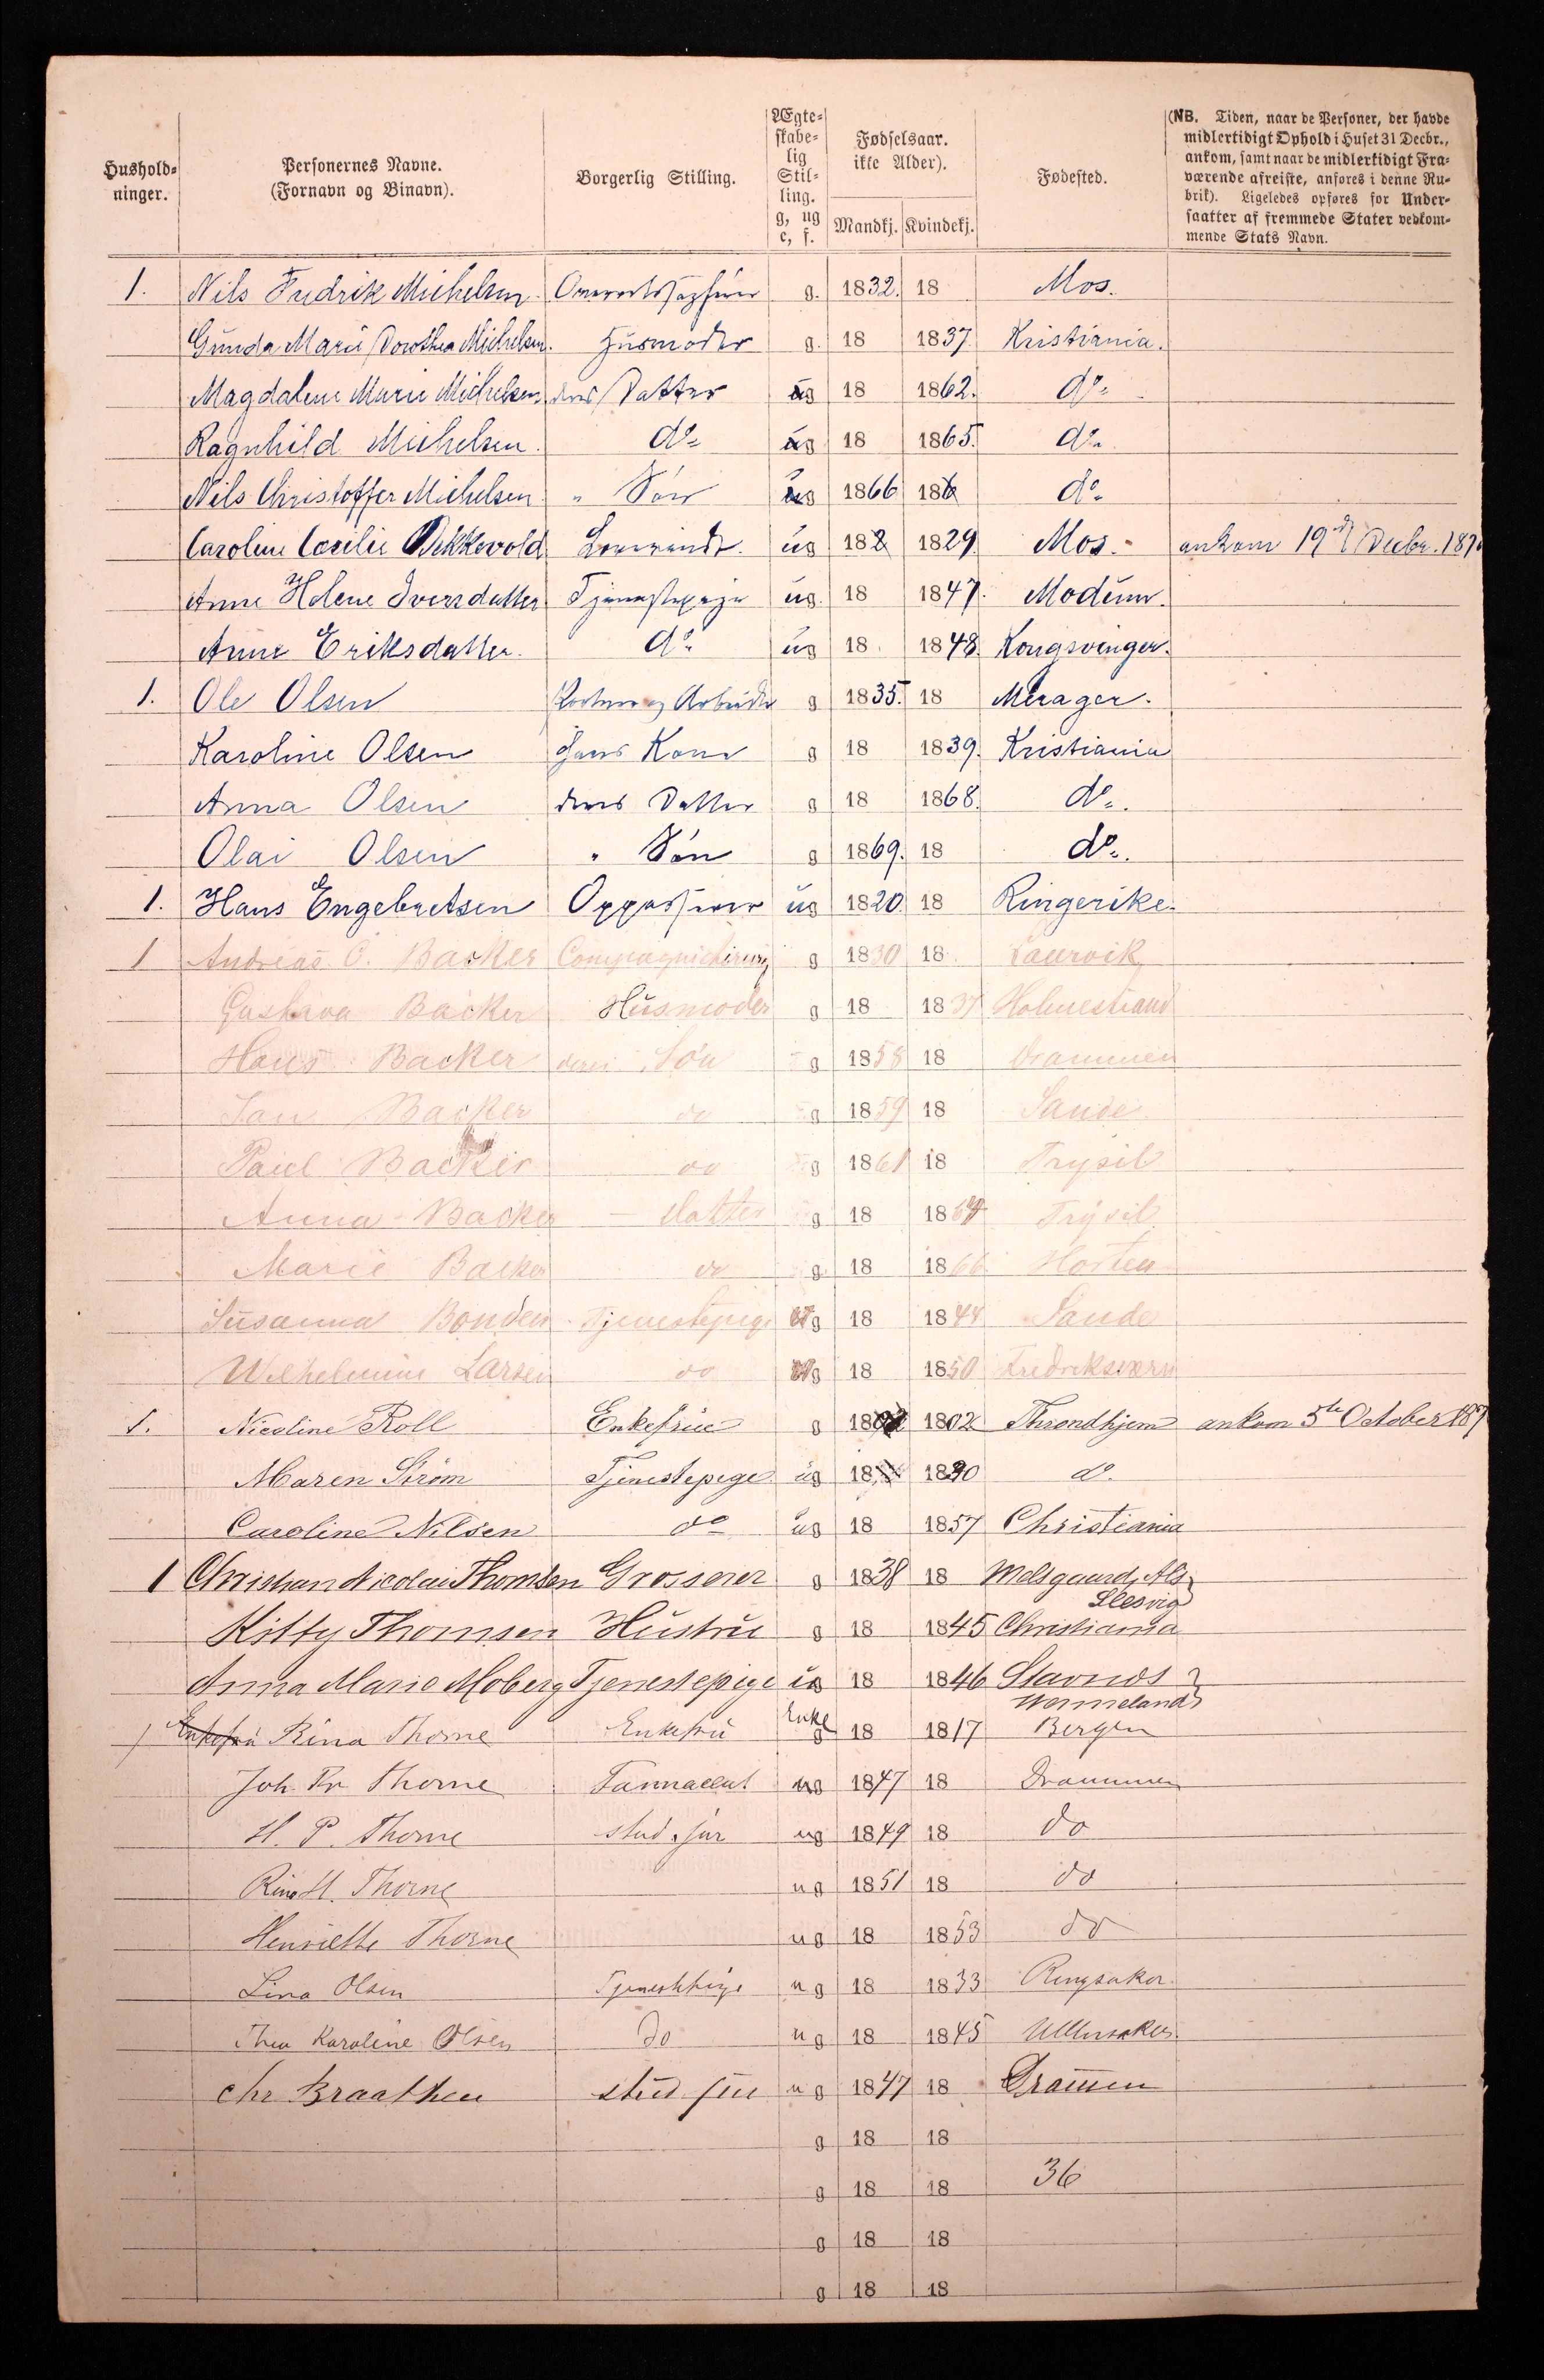 Hushold-
ninger.
Personernes Navne.
(Fornavn og Binavn).
Borgerlig Stilling.
Ægte-
skabe-
lig
Stil-
ling.
g, ug
e, f.
Fødselsaar.
ikke Alder).
Mandkj. Kvindekj.
Fødested.
(NB. Tiden, naar de Personer, der havde
midlertidigt Ophold i Huset 31 Decbr.,
ankom, samt naar de midlertidigt Fra-
værende afreiste, anføres i denne Ru-
brik). Ligeledes opføres for Under-
saatter af fremmede Stater vedkom-
mende Stats Navn.
1. Nils Fredrik Michelsen. g. 1832. 18 Mos.
Gunda Marie Dorothea Michelsen. Husmoder g. 18 1837. Kristiania.
Magdalene Marie Michelsen. deres Datter ug 18 1862. do
Ragnhild Michelsen. do ug 18 1865. do
Nils Christoffer Michelsen. " Søn ug 1866 18 do
Caroline Cæcilie Bekkevold ug 18 1829 Mos. ankom 19de Decbr. 1870
Anne Helene Iversdatter Tjenestepige ug. 18 1847. Modum.
Anne Eriksdatter. do ug 18 1848. Kongsvinger.
1. Ole Olsen Arbeider g 1835. 18 Merager.
Karoline Olsen Hans Kone g 18 1839. Kristiania
Anna Olsen deres Datter g 18 1868. do.
Olai Olsen " Søn g 1869. 18 do.
1. Hans Engebretsen Oppasser ug 1820 18 Ringerike.
1 Andreas C. Backer Compagnichirurg g 1830 18 Laurvik
Gustava Backer Husmoder g 18 1837 Holmestrand
Hans Backer deres Søn g 1858 18 Drammen
Jan Backer do g 1859 18 Sande
Paul Backer do g 1861 18 Trysil
Anna Backer — datter g 18 1864 Trysil
Marie Backer do g 18 1866 Horten
Susanna Bonden Tjenestepige Ug 18 1844 Sande
Wilhelmine Larsen do Ug 18 1850 Fredriksværn
1. Nicoline Roll Enkefrue g 18 1802 Throndhjem ankom 5te October 187
Maren Strøm Tjenestepige ug 18 1830 do.
Caroline Nilsen do ug 18 1857 Christiania
1 Christian Nicolai Thomsen Grosserer g 1838 18 Melsgaard, Als,
Slesvig
Kitty Thomsen Hustru g 18 1845 Christiania
Anna Marie Moberg Tjenestepige ug 18 1846 Stavnæs
Wermeland
1 Enkefru Rina Thorne Enkefru Enke g 18 1817 Bergen
Joh. Kr Thorne ug 1847 18 Drammen
H. P. Thorne stud. jur ug 1849 18 do
Rino H. Thorne ug 1851 18 do
Henriette Thorne ug 18 1853 do
Lina Olsen Tjenestepige ug 18 1833 Ringsaker
Thea Karoline Olsen do ug 18 1845 Ullensaker
Chr Braathen stud jur ug 1847 18 Drammen
g 18 18
g 18 18 36
g 18 18
g 18 18